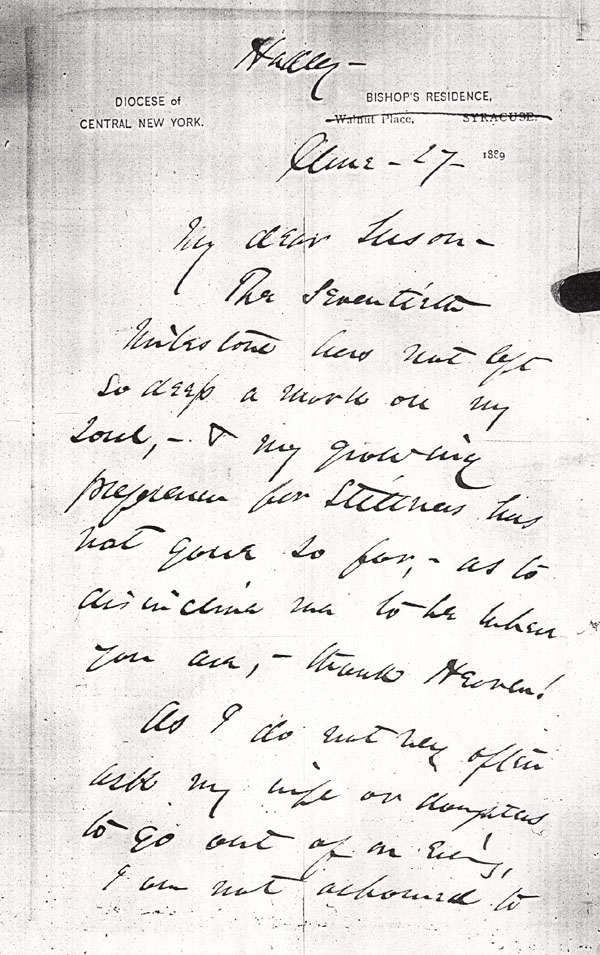 Hadley –
DIOCESE of
CENTRAL NEW YORK.
BISHOP'S RESIDENCE,
Walnut Place, SYRACUSE.
June – 27 – 1889
My dear Susan –
The Seventieth
Milestone has not left
so deep a mark on my
Soul, – & my growing
preference for Stillness has
not gone so far, – as to
disincline me to be where
you are, – thank Heaven!
As I do not very often
ask my wife or daughters
to go out of an Ev'g,
I am not ashamed to